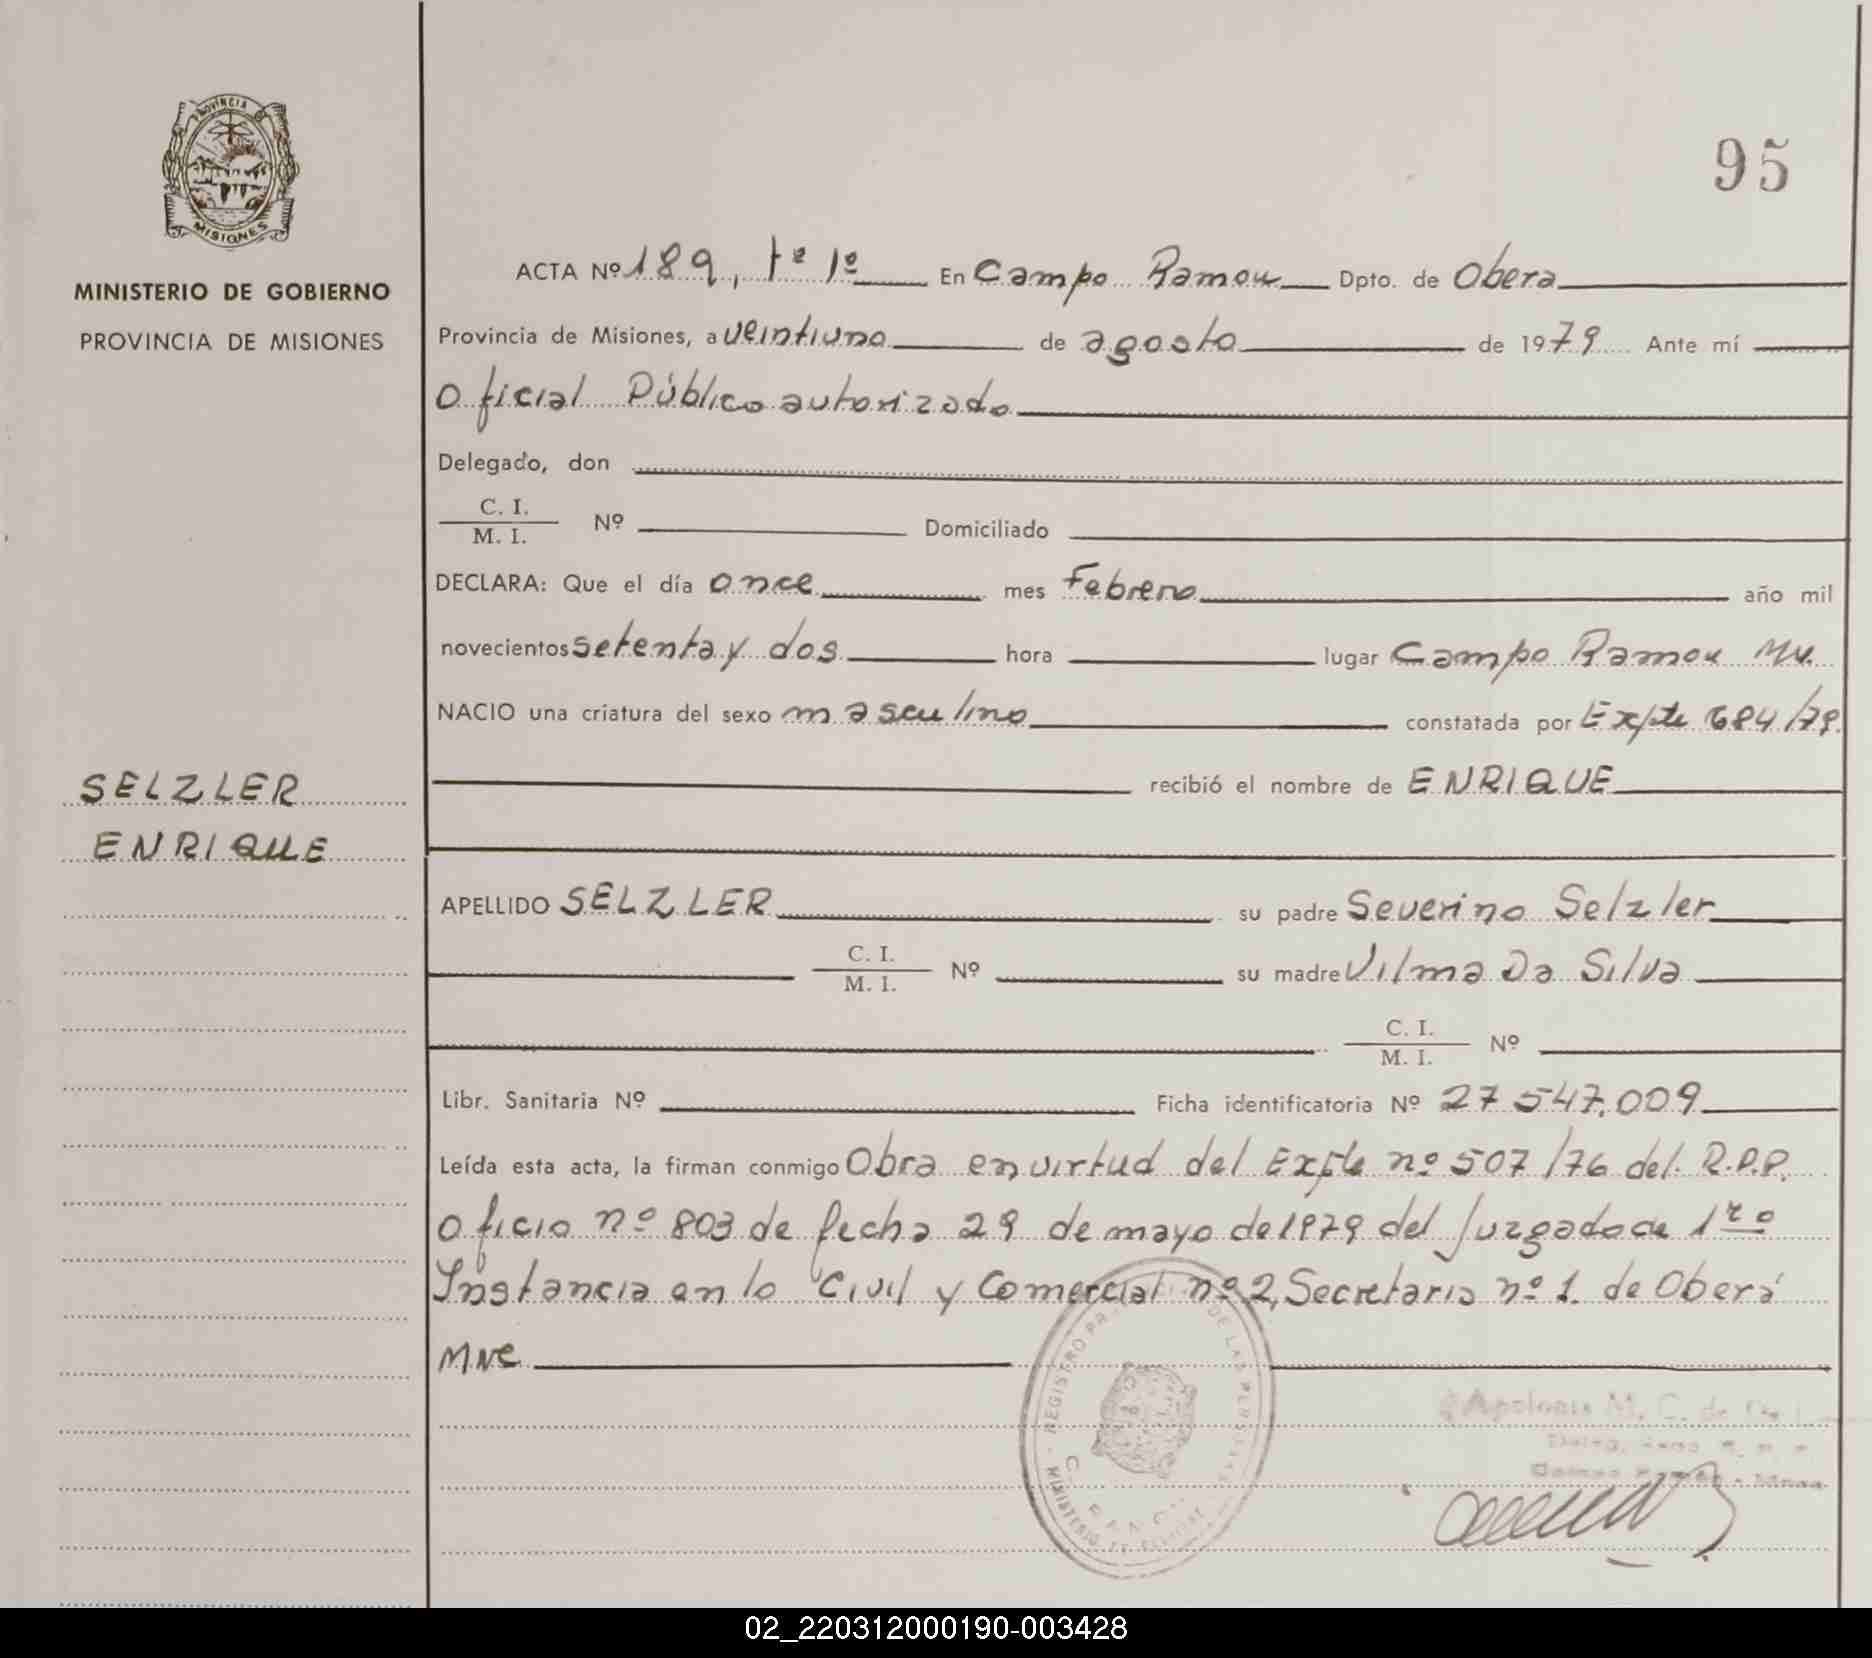 PROVINCIA
MISIONES
MINISTERIO DE GOBIERNO
PROVINCIA DE MISIONES
95
ACTA Nº 189, tº 1º En Campo Ramon Dpto. de Obera
Provincia de Misiones, a veintiuno de agosto de 1979 Ante mí
Oficial Público autorizado
Delegado, don
C. I.
M. I. Nº Domiciliado
DECLARA: Que el día once mes Febrero año mil
novecientos setenta y dos hora lugar Campo Ramon
NACIO una criatura del sexo masculino constatada por Expte 684/79.
recibió el nombre de ENRIQUE
SELZLER
ENRIQUE
APELLIDO SELZLER su padre Severino Selzler
C. I.
M. I. Nº su madre Vilma Da Silva
C. I.
M. I. Nº
Libr. Sanitaria Nº Ficha identificatoria Nº 27 547.009
Leída esta acta, la firman conmigo Obra en virtud del Expte nº 507/76 del R.P.P.
Oficio nº 803 de fecha 29 de mayo de 1979 del Juzgado de 1ro
Instancia en lo Civil y Comercial nº 2, Secretaria nº 1. de Oberá
Mnes.
REGISTRO DE LAS PERSONAS
MINISTERIO DE
Apolonia M. C. de
02_220312000190-003428